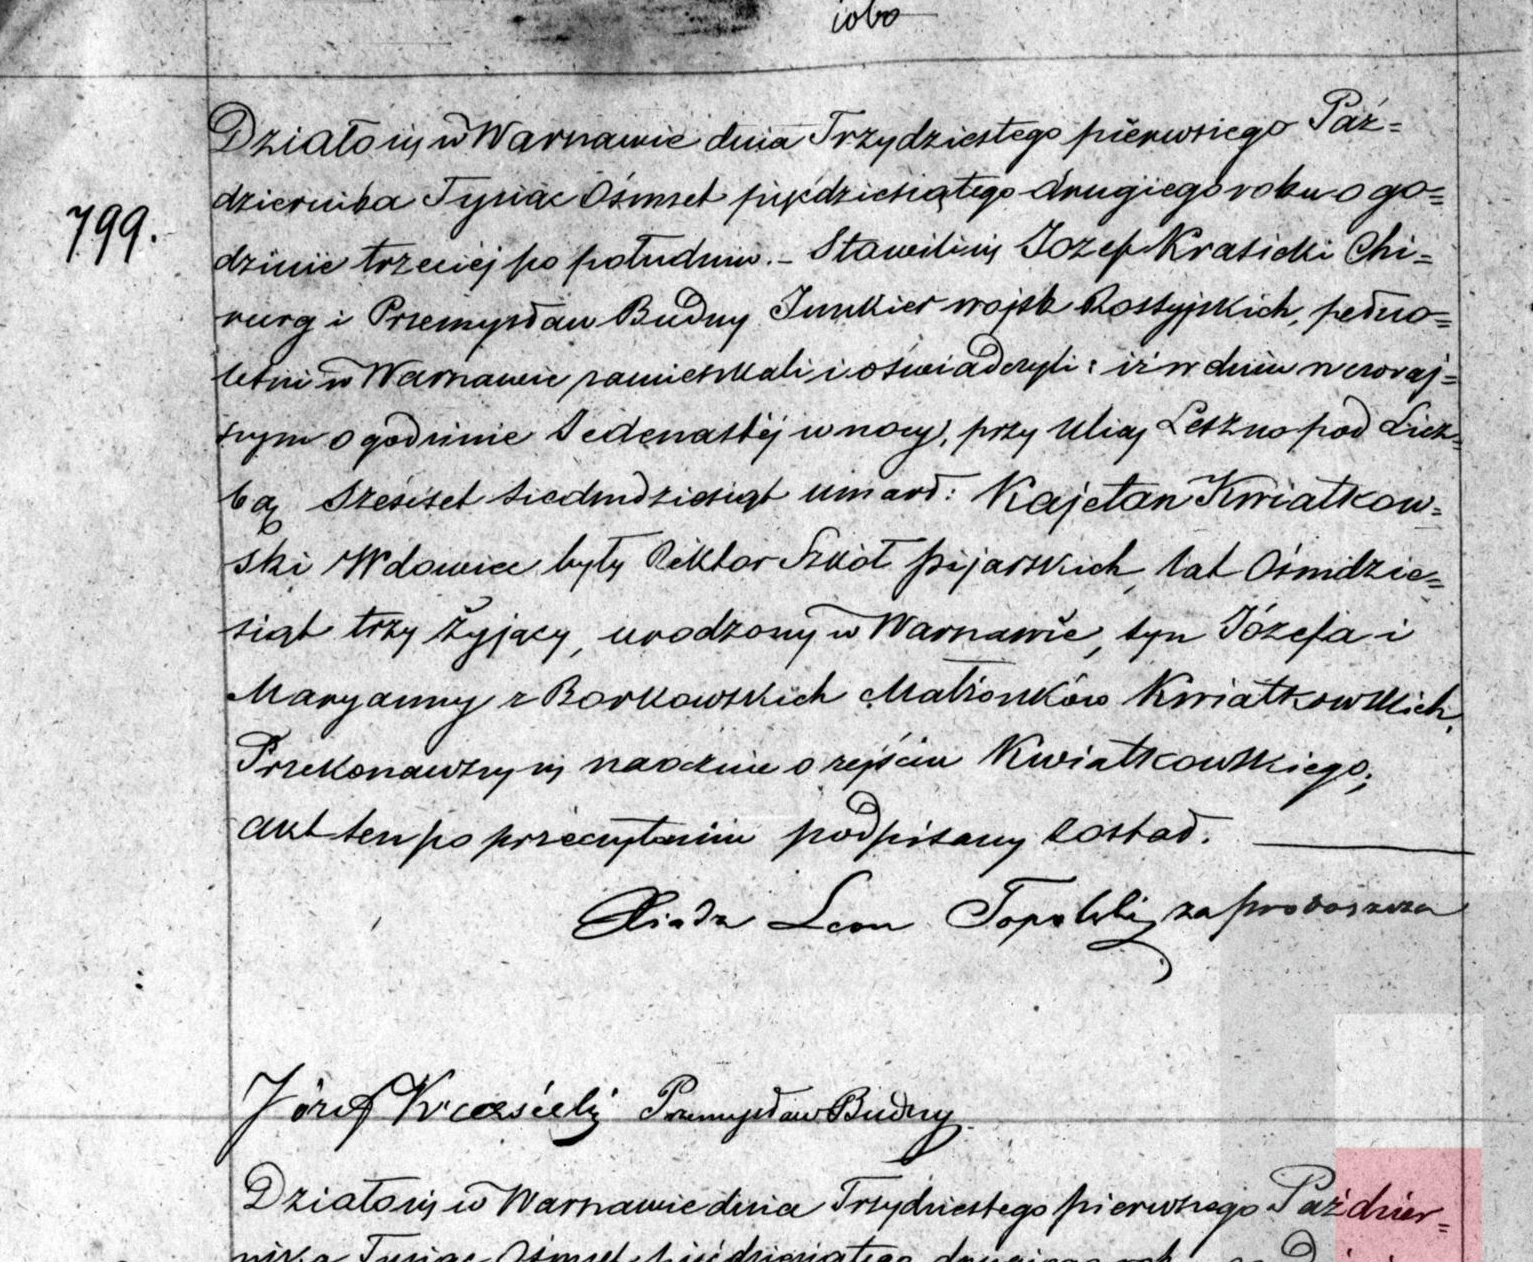 799.
Działo się w Warszawie dnia Trzydziestego pierwszego Paź=
dziernika Tysiąc Ośmset pięćdziesiątego drugiego roku o go=
dzinie trzeciej po południu. – Stawili się Józef Krasicki Chi=
rurg i Przemysław Budny Junkier wojsk Rossyjskich, pełno=
letni w Warszawie zamieszkali i oświadczyli: iż w dniu wczoraj=
szym o godzinie Jedenastéj w nocy, przy Ulicy Leszno pod Licz=
bą Sześćset siedmdziesiąt umarł: Kajetan Kwiatkow=
ski Wdowiec były Rektor Szkół pijarskich, lat Ośmdzie=
siąt trzy żyjący, urodzony w Warszawie, syn Józefa i
Maryanny z Borkowskich Małżonków Kwiatkowskich.
Przekonawszy się naocznie o zejściu Kwiatkowskiego;
akt ten po przeczytaniu podpisany został.
Xiądz Leon Topolski za proboszcza
Józef Krasicki Przemysław Budny
Działo się w Warszawie dnia Trzydziestego pierwszego Paździer=
nika Tysiąc Ośmset pięćdziesiątego drugiego